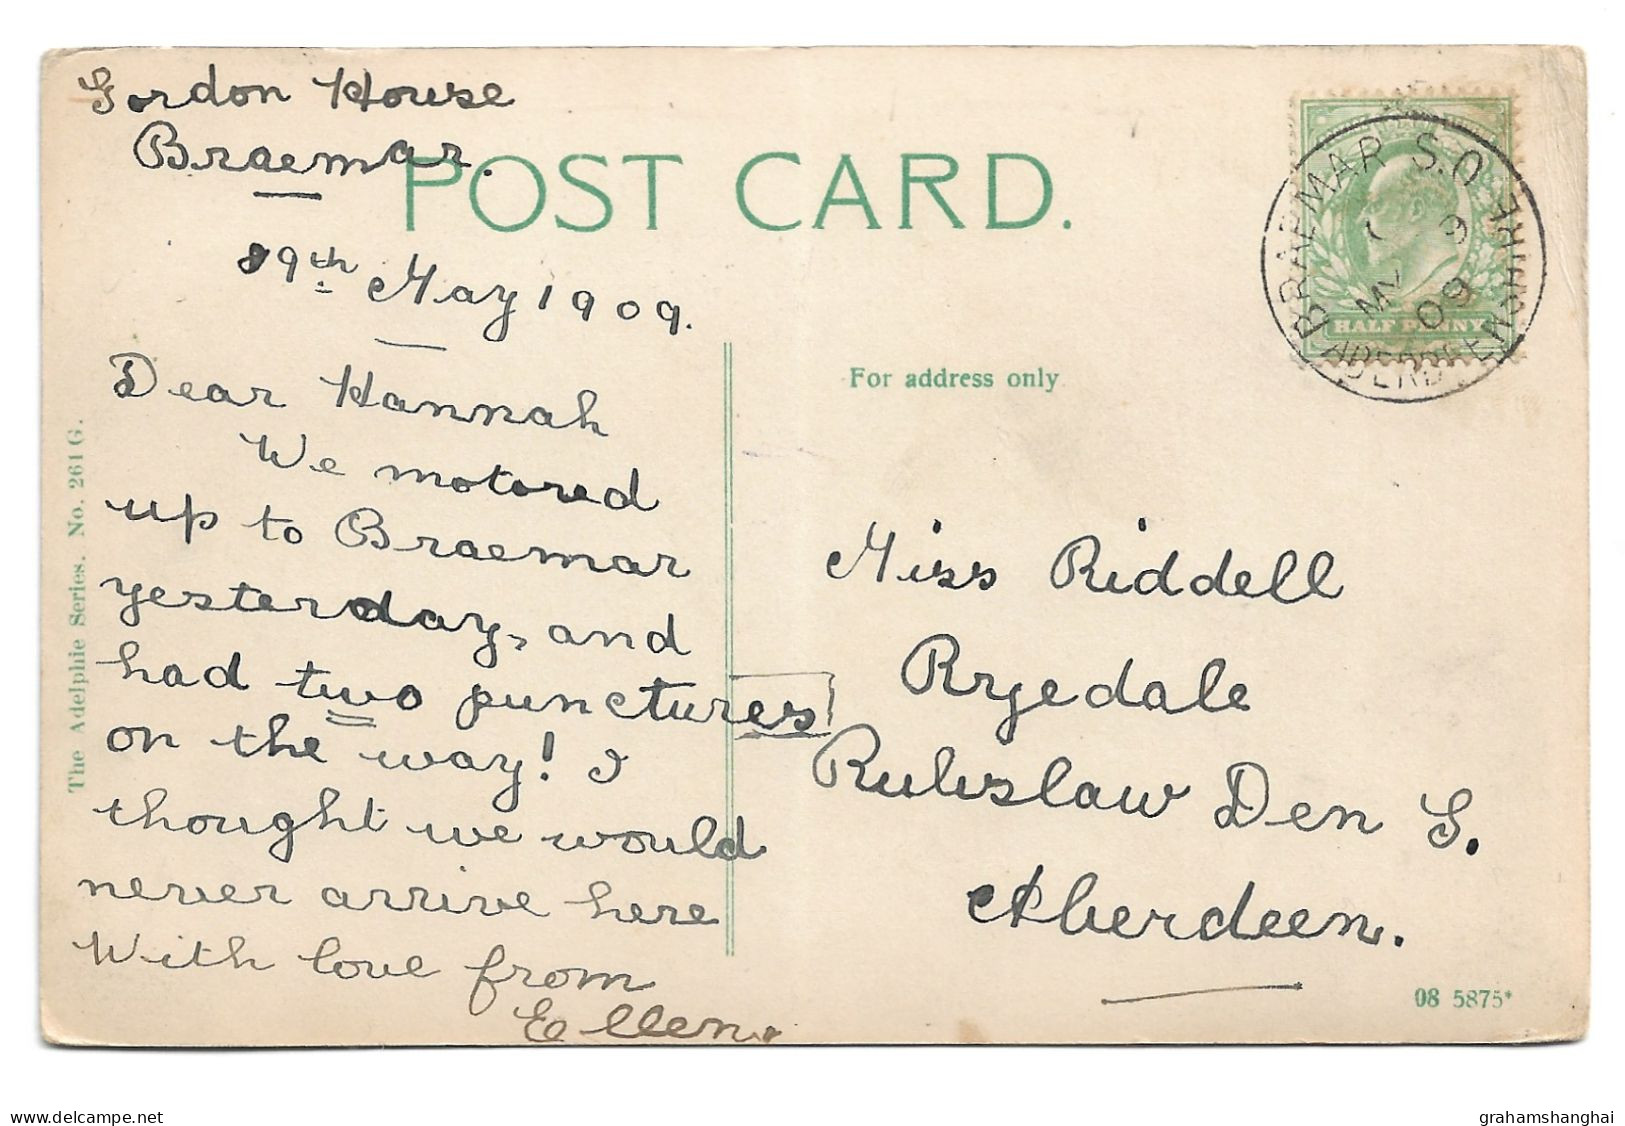 Gordon House
Braemar.
19th May 1909.
Dear Hannah
We motored
up to Braemar
yesterday, and
had two punctures
on the way! I
thought we would
never arrive here
With love from
Ellen.
The Adelphie Series. No. 261 G.
POST CARD.
For address only
BRAEMAR S.O
ABERDEENSHIRE
MY 19
09
HALF PENNY
Miss Riddell
Ryedale
Rubislaw Den S.
Aberdeen.
08 5875*
delcampe.net
grahamshanghai